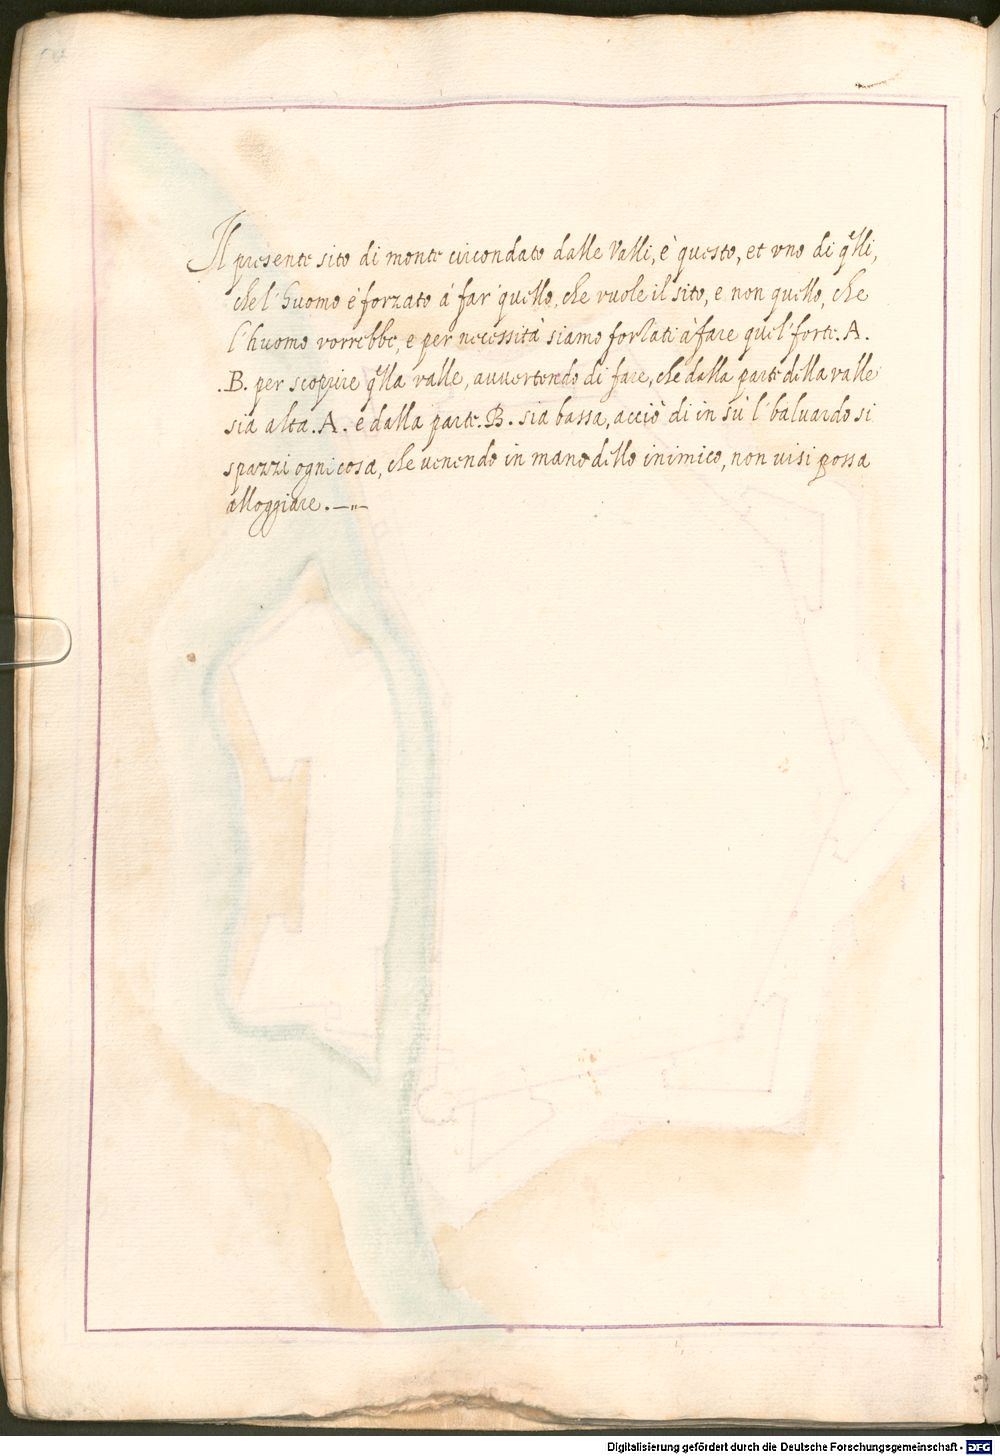 Il presente sito di monte circondato dalle Valli, è questo, et uno di q̃lli,
che l'huomo è forzato à far' quello, che vuole il sito, e non quello, che
l'huomo vorrebbe, e per necessità siamo forzati à fare quel' forte .A.
.B. per scoprire q̃lla valle, auuertendo di fare, che dalla parte della valle
sia alta .A. e dalla parte .B. sia bassa, acciò di in sù l' baluardo si
spazzi ogni cosa, che uenendo in mano dello inimico, non uisi possa
alloggiare.
Digitalisierung gefördert durch die Deutsche Forschungsgemeinschaft - DFG